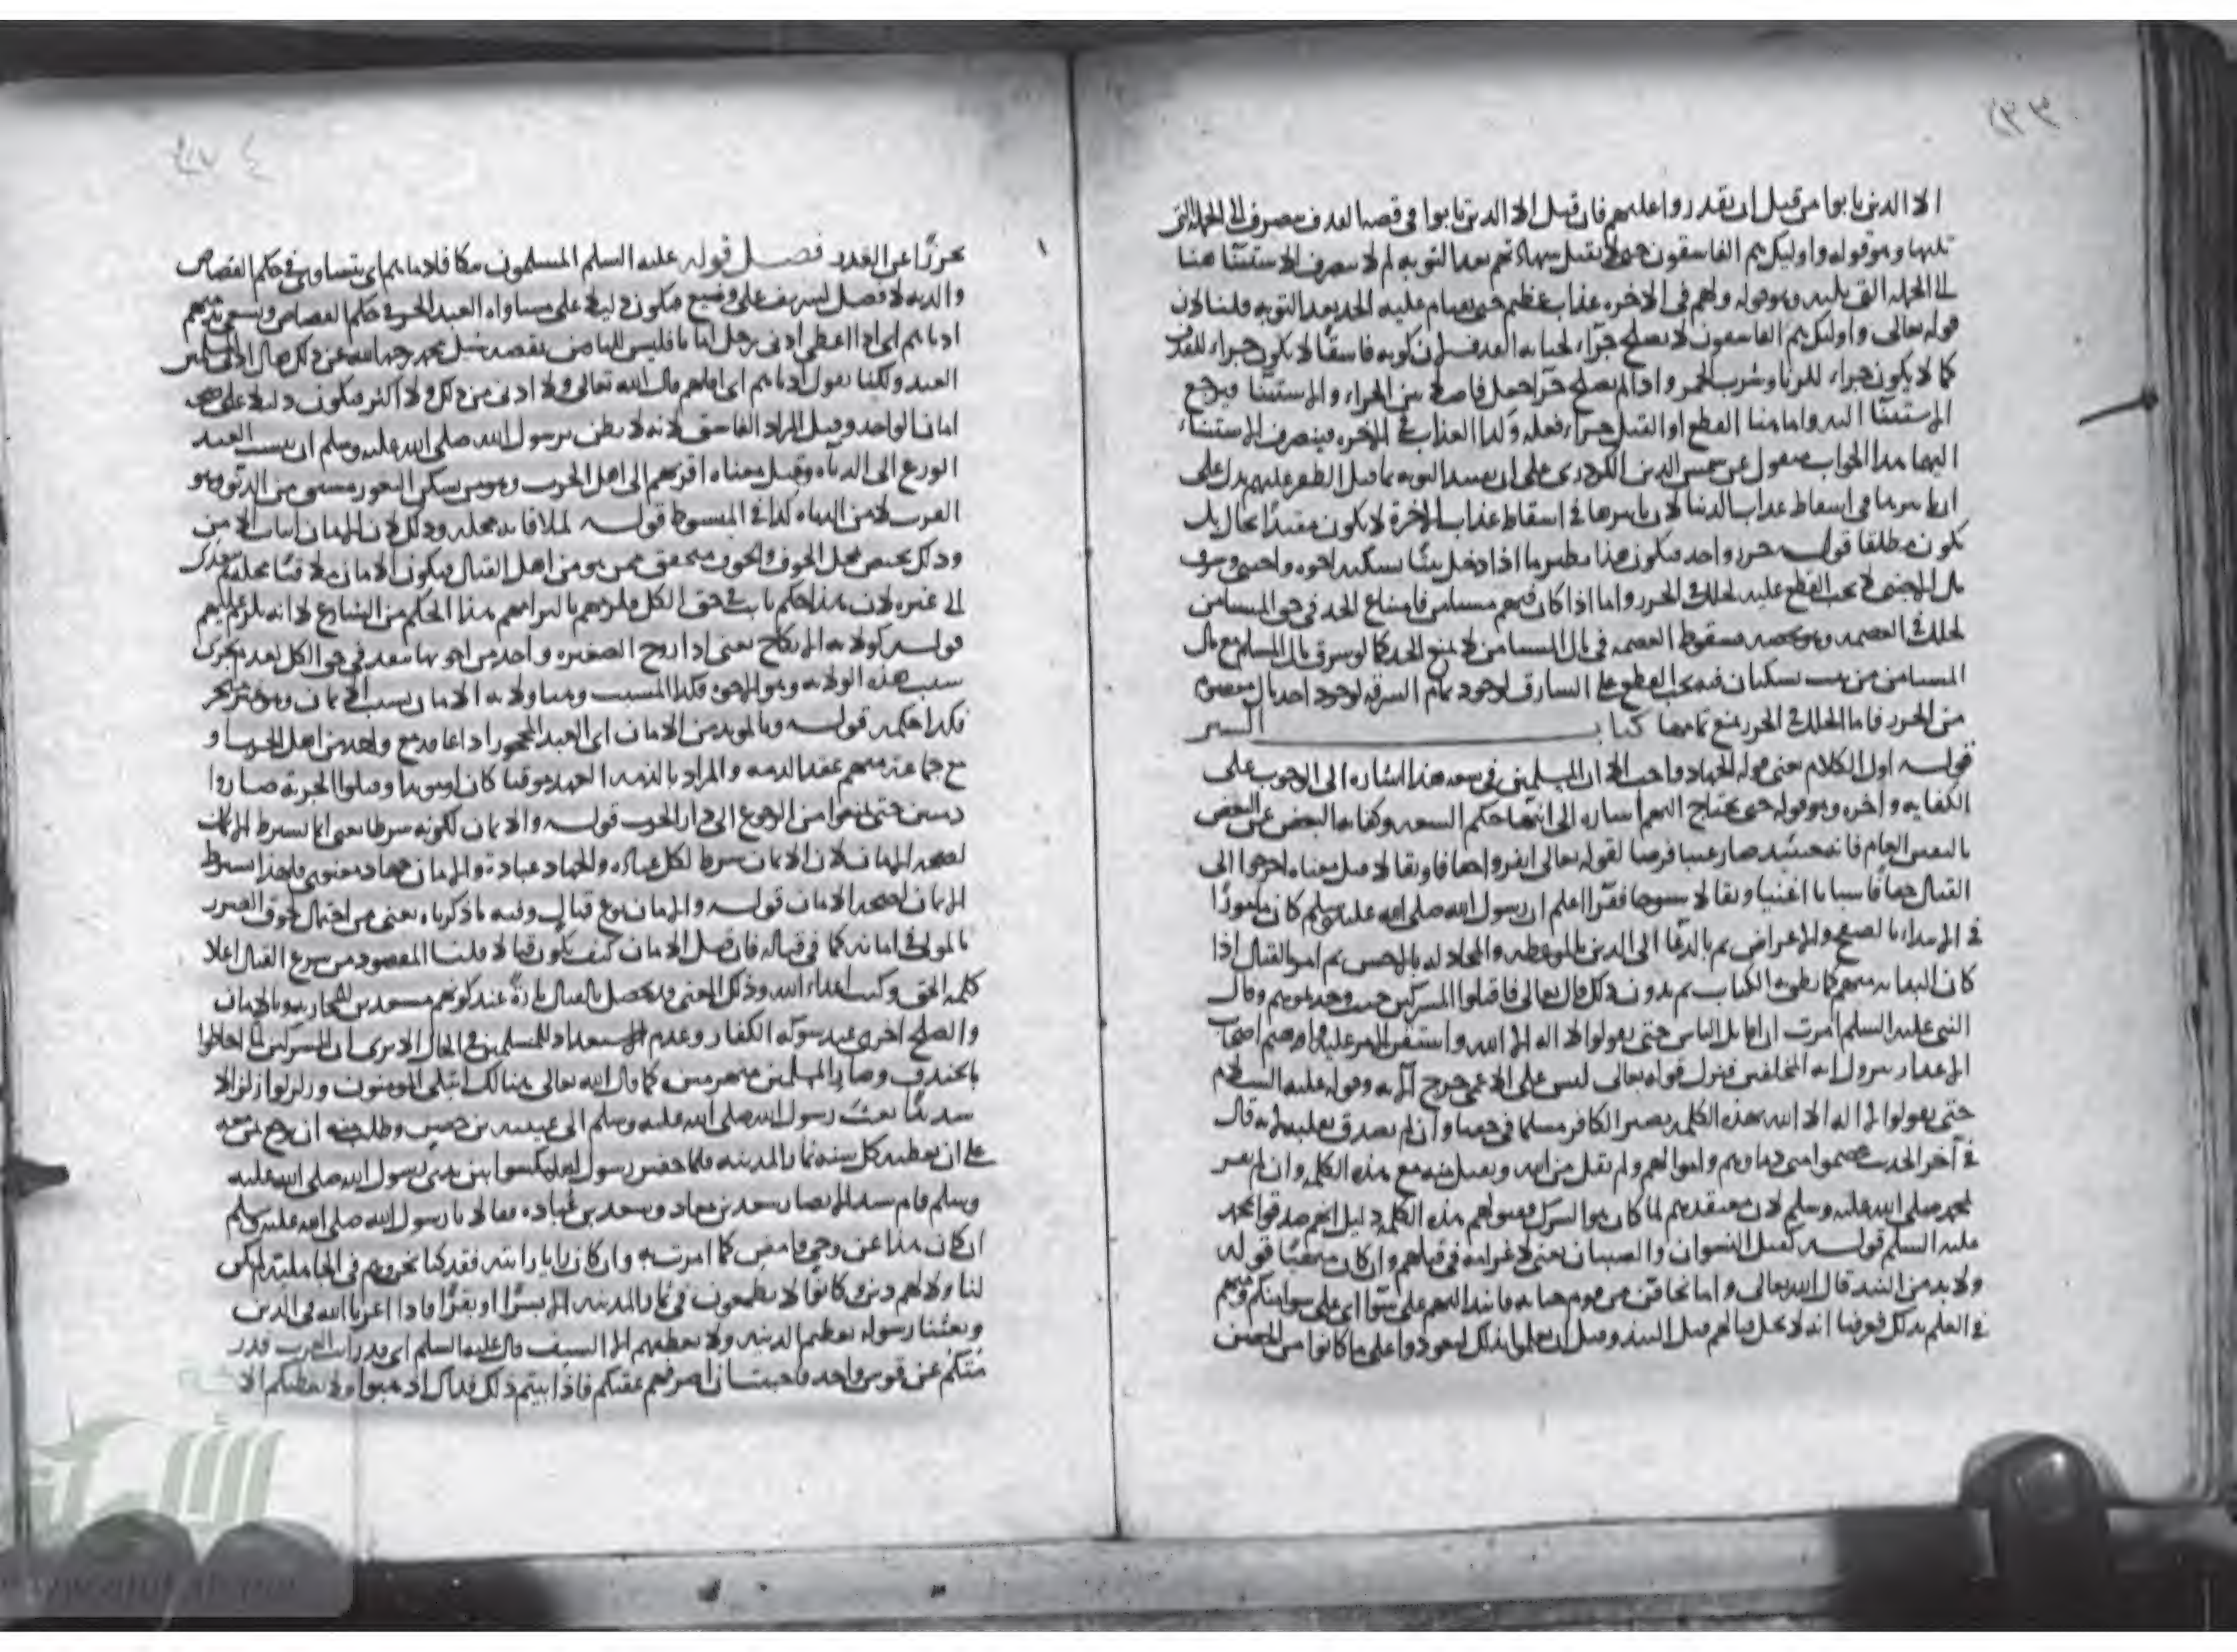 الا الذين تابوا من قبل ان تقدروا عليهم فان قيل الا الذين تابوا في قصة القذف مصروف الى الجملة التي
تليها وهو قوله واوليك هم الفاسقون حتى لا تقبل شهادتهم بعد التوبة لم لا يصرف الاستثناء هنا
الى الجملة التي تليه وهو قوله ولهم في الاخره عذاب عظيم حتى يقام عليه الحد بعد التوبه قلنا لان
قوله تعالى واوليك هم الفاسقون لا يصلح جزاء لجناية القذف لان كونه فاسقا لا يكون جزاء للقذف
كما لا يكون جزاء للزنا وشرب الخمر واذا لم يصلح جزاء جعل فاصلا بين الجزاء والاستثناء فيرجع
الاستثناء اليه واما هنا القطع او القتل جزاء فعله وكذا العذاب في الاخره فينصرف الاستثناء
اليهما هذا الجواب منقول عن شمس الدين الكردري على ان تقييد التوبه بما قبل الظفر عليهم يدل على
ان تاثيرها في اسقاط عذاب الدنيا لان تاثيرها في اسقاط عذاب الاخرة لا يكون مقيدا بحال بل
يكون مطلقا قوله حرز واحد فيكون هذا نظير ما اذا دخل بيتا يسكنه اخوه واجنبي وسرق
مال الاجنبي لا يجب القطع عليه لخلل في الحرز واما اذا كان فيهم مستامن فامتناع الحد في حق المستامن
لخلل في العصمه وهو يخصه فسقوط العصمه في مال المستامن لا يمنع الحد كما لو سرق مال المسلم مع مال
المستامن من بيت يسكنان فيه يجب القطع على السارق لوجود تمام السرقه لوجود اخذ مال معصوم
من الحرز فاما الخلل في الحرز يمنع تمامها كتاب السير
قوله اول الكلام يعني قوله الجهاد واجب الا ان المسلمين في سعه هذا اشاره الى الوجوب على
الكفايه واخره وهو قوله حتى يحتاج اليهم اشاره الى انتهاء حكم السعه وكفايه البعض عن البعض
بالنفير العام فانه حينئذ صار عينا فرضا لقوله تعالى انفروا خفافا وثقالا قيل معناه اخرجوا الى
القتال خفافا شبابا اغنيا وثقالا شيوخا فقرا اعلم ان رسول الله صلى الله عليه وسلم كان مامورا
في الابتداء بالصفح والاعراض ثم بالدعا الى الدين بالموعظه والمجادله بالاحسن ثم امر بالقتال اذا
كان البدايه منهم كما نطق به الكتاب ثم بدون ذلك قال تعالى فاقتلوا المشركين حيث وجدتموهم وقال
النبي عليه السلام امرت ان اقاتل الناس حتى يقولوا لا اله الا الله واستقر الامر عليه
الاعذار رسول الله المخلفين فنزل قوله تعالى ليس على الاعمى حرج الآيه وقوله عليه السلام
حتى يقولوا لا اله الا الله بهذه الكلمه يصير الكافر مسلما في حقنا وان لم يصدق بقلبه لانه قال
في آخر الحديث عصموا مني دماءهم واموالهم ولم يقل من الله ويقبل منه مع هذه الكلمه وان لم يقر
بمحمد صلى الله عليه وسلم لان معتقدهم لما كان هو الشرك فقولهم هذه الكلمه دليل انهم صدقوا محمد
عليه السلام قوله كقتل النسوان والصبيان يعني لا غرامه في قتلهم وان كان منهيا قوله
ولا بد من النبذ قال الله تعالى واما تخافن من قوم خيانه فانبذ اليهم على سواء اي على سواء منكم ومنهم
في العلم بذلك فعرفنا انه لا يحل قتالهم قبل النبذ وقبل ان يعلموا بذلك ليعودوا على ما كانوا من التحصن
تحرزا عن الغدر فصل قوله عليه السلم المسلمون تتكافا دماؤهم اي تتساوى في حكم القصاص
والديه لا فضل لشريف على وضيع فيكون دليلا على مساواه العبد الحر في حكم القصاص ويسعى بذمتهم
ادناهم اي اذا اعطى ادنى رجل امانا فليس للباقين نقضه سئل محمد رحمه الله عن ذلك فقال
العبد ولكنا نقول ادناهم اي اقلهم قال الله تعالى ولا ادنى من ذلك ولا اكثر فيكون دليلا على صحه
امان الواحد وقيل المراد الفاسق لانه لا يظن برسول الله صلى الله عليه وسلم ان ينسب العبد
الورع الى الدناءه وقيل معناه اقربهم الى اهل الحرب وهو من يسكن الثغور مشتق من الدنو وهو
القرب لا من الدناءه كذا في المبسوط قوله لملاقاته محله وذلك لان الامان اثبات الامن
وذلك يختص بمحل الخوف والخوف يتحقق ممن هو من اهل القتال فيكون الامان ملاقيا محله ثم يتعدى
الى غيره لان هذا حكم ثابت في حق الكل
قوله كولايه الانكاح يعني اذا زوج الصغيره واحد من اخوتها ينفذ في حق الكل
سبب هذه الولايه وهو الاخوه فكذا السبب وهنا ولايه الامان بسبب الايمان وهو غير متجزئ
فكذا حكمه قوله وبالمؤبد من الامان اي العبد المحجور اذا عاقد مع واحد من اهل الحرب او
مع جماعه منهم عقد الذمه والمراد بالذمه العهد موقتا كان او مؤبدا وقبلوا الجزيه صاروا
ذميين حتى منعوا من الرجوع الى دار الحرب قوله والايمان لكونه شرطا يعني انما يشترط الايمان
لصحه الامان لان الايمان شرط لكل عباده والجهاد عباده والامان جهاد معنوي فلهذا اشترط
الايمان لصحه الامان قوله والامان نوع قتال وفيه ما ذكرناه يعني من احتمال لحوق الضرر
بالمولى في امانه كما في قتاله فان قيل الامان كيف يكون قتالا قلنا المقصود من شرع القتال اعلا
كلمه الحق وكبت اعداء الله وذلك المعنى قد يحصل بالقتال تارة عند كونهم مستعدين للمحاربه وبالامان
والصلح اخرى عند شوكه الكفار وعدم الاستعداد للمسلمين في الحال الا يرى ان المشركين لما احاطوا
بالخندق وصار المسلمين منحصرين كما قال الله تعالى هنالك ابتلي المومنون وزلزلوا زلزالا
شديدا بعث رسول الله صلى الله عليه وسلم الى عيينه بن حصن وطلب منه ان يرجع بمن معه
على ان يعطيه كل سنه ثمار المدينه فلما حضر رسوله ليكتبوا بين يدي رسول الله صلى الله عليه
وسلم قام سيد الانصار سعد بن معاذ وسعد بن عباده فقالا يا رسول الله صلى الله عليه وسلم
ان كان هذا عن وحي فامض كما امرت به وان كان رايا رايته فقد كنا نحن وهم في الجاهليه لم يكن
لنا ولا لهم دين وكانوا لا يطمعون في ثمار المدينه الا بشرا او بقرا فاذا اعزنا الله في الدين
وبعثنا رسوله نعطيهم الدنيه ولا نعطيهم الا السيف قال عليه السلم اني قد رايت العرب قد
رمتكم عن قوس واحد فاحببت ان اصرفهم عنكم فاذا ابيتم ذلك فذاك اذهبوا ولا نعطيكم الا